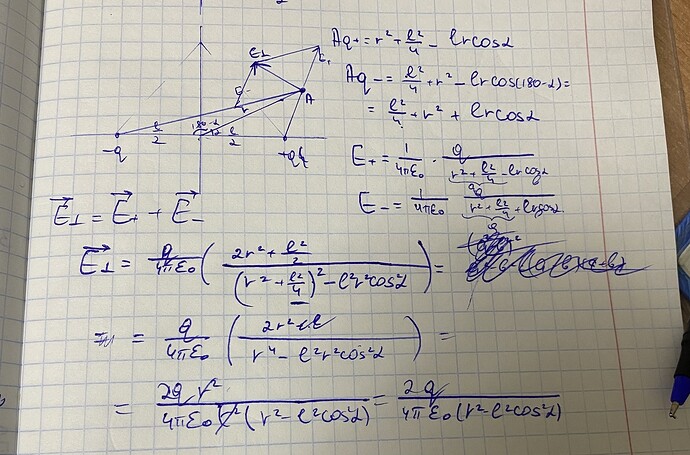 Aq+ = r² + ℓ²/4 - ℓrcosα
Aq- = ℓ²/4 + r² - ℓrcos(180-α) =
= ℓ²/4 + r² + ℓrcosα
E⊥
E+
E-
A
r
180-α
α
ℓ/2
ℓ/2
-q
+q
E+ = 1/4πε₀ · q/(r² + ℓ²/4 - ℓrcosα)
E- = 1/4πε₀ q/(r² + ℓ²/4 + ℓrcosα)
E⃗⊥ = E⃗+ + E⃗-
E⃗⊥ = q/4πε₀ ( (2r² + ℓ²/2)/((r² + ℓ²/4)² - ℓ²r²cos²α) ) =
= q/4πε₀ ( 2r²/(r⁴ - ℓ²r²cos²α) ) =
= 2q r²/(4πε₀ r² (r² - ℓ²cos²α)) = 2q/(4πε₀(r² - ℓ²cos²α))